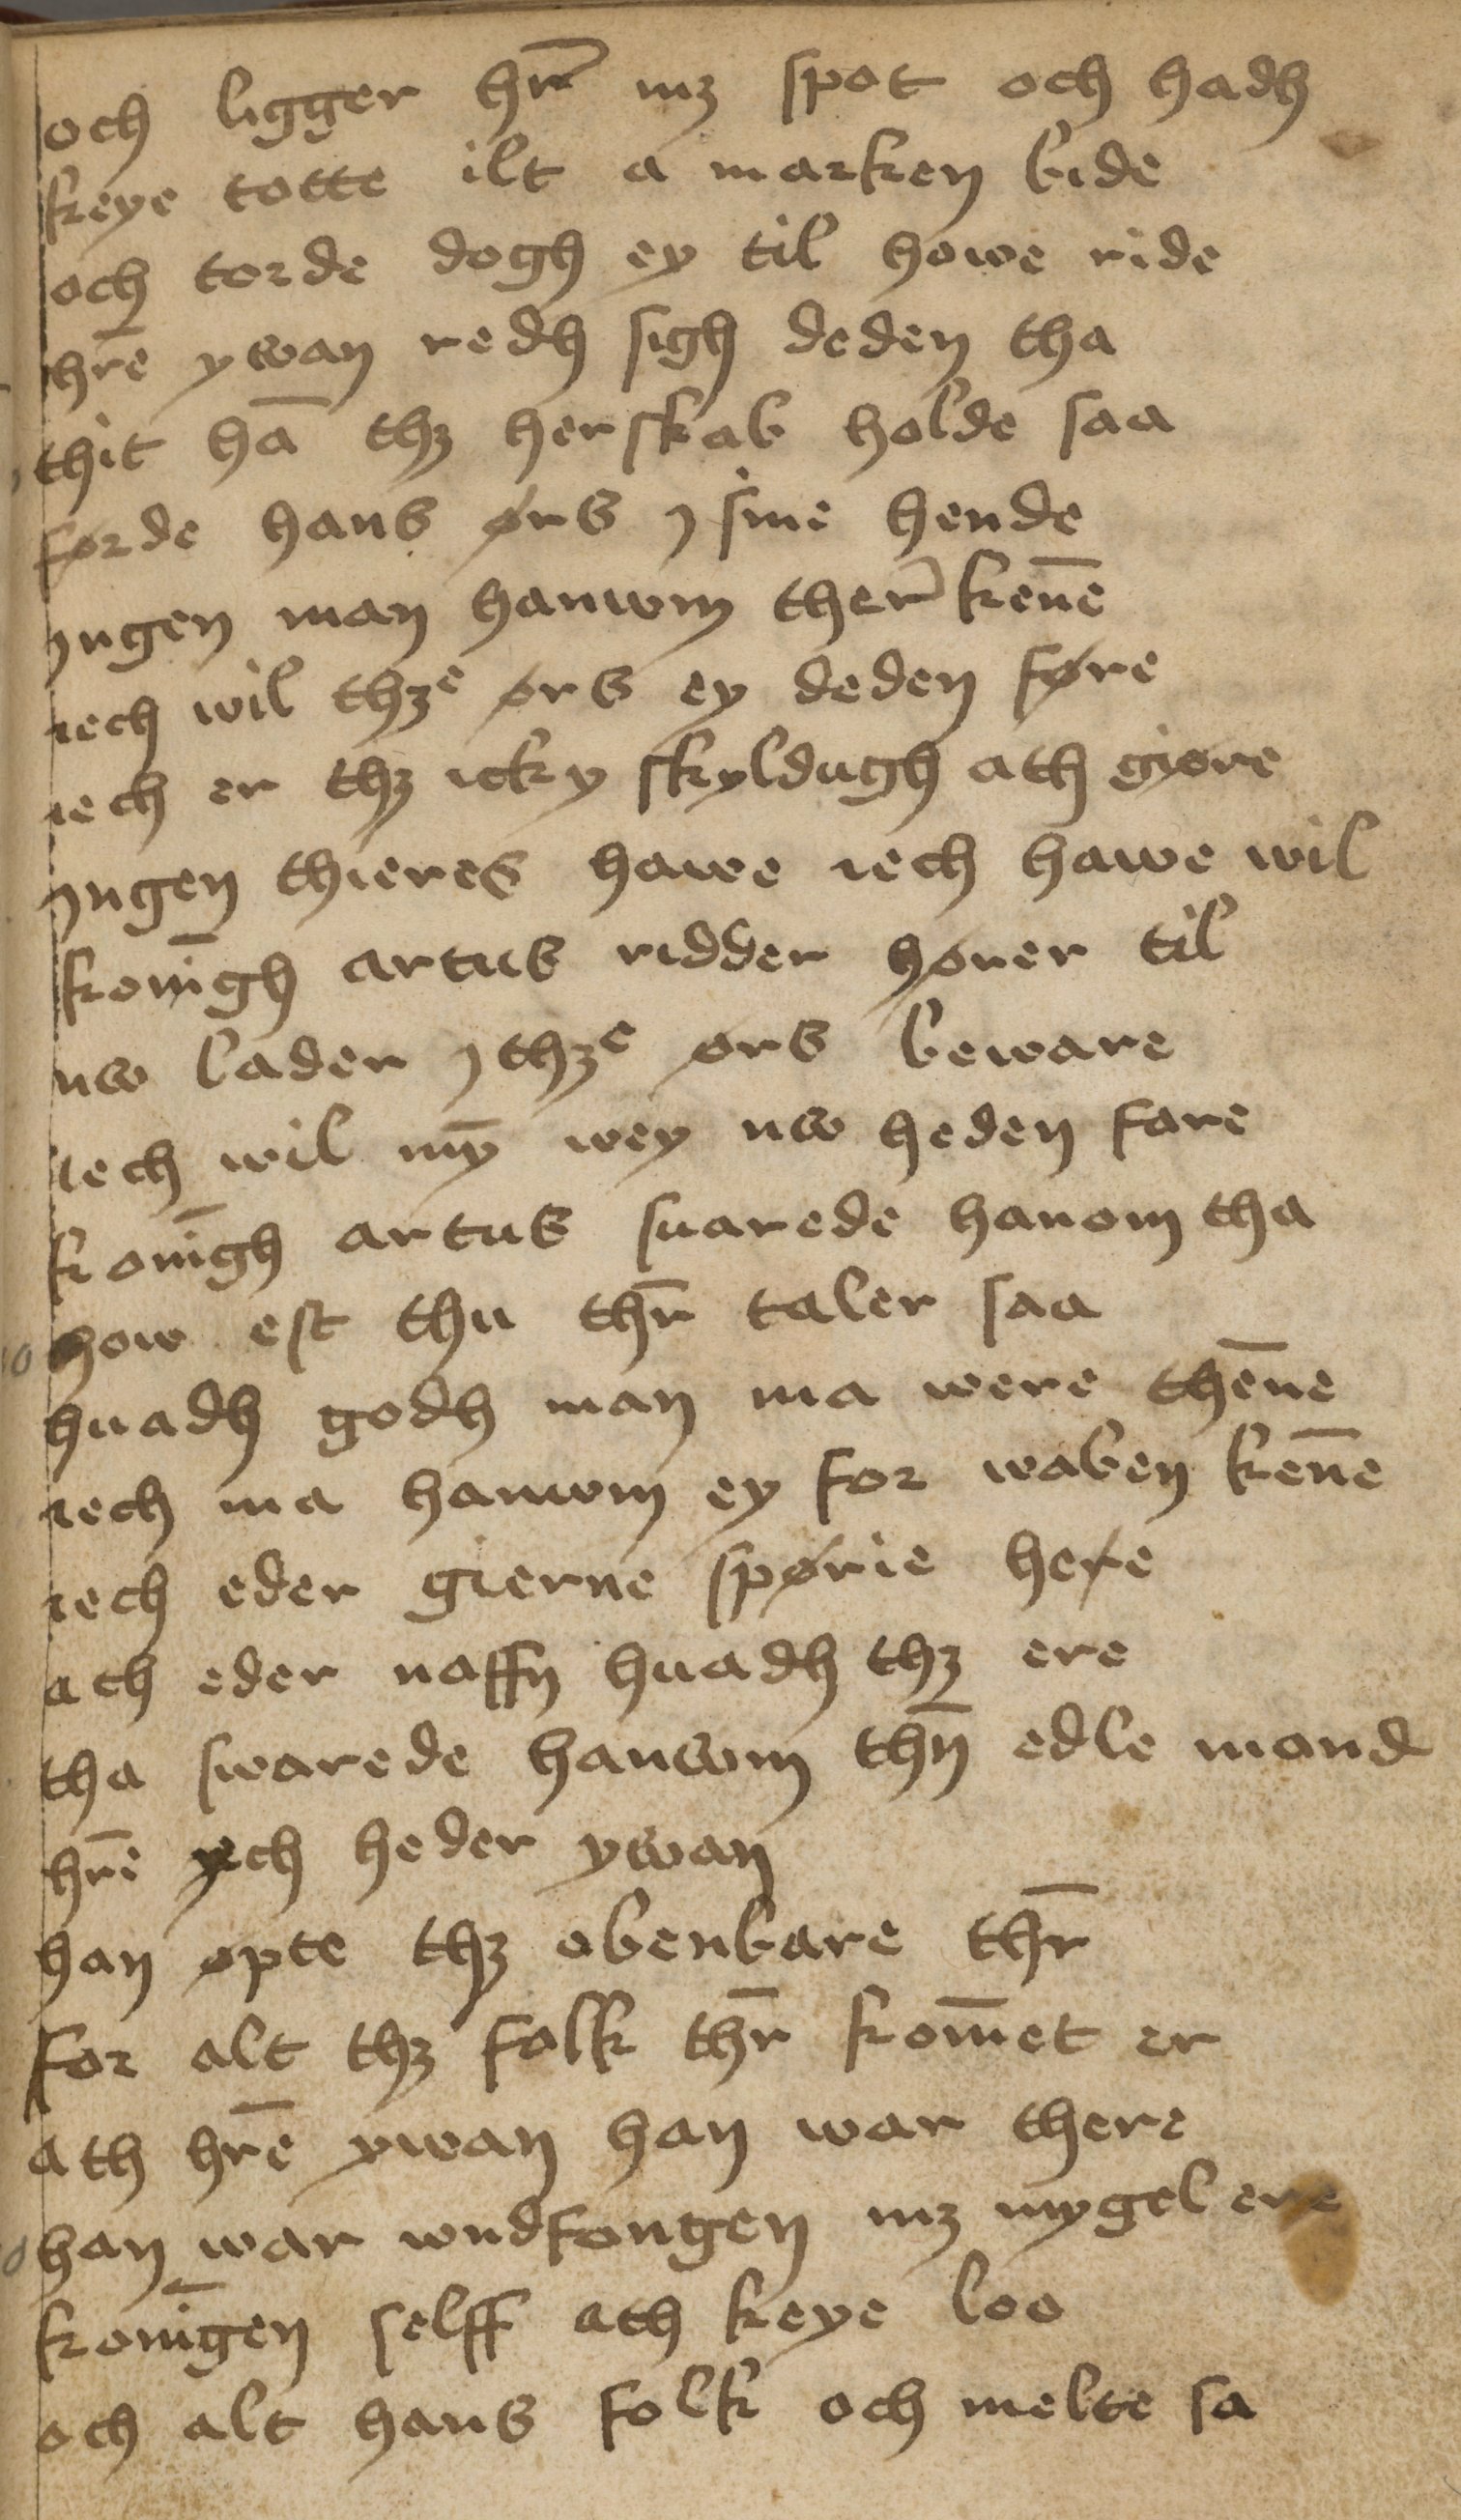 och ligger hr̄ mꝫ spot och hadh
keye totte ilt a marken bide
och torde dogh ey til howe ride
hrē ywan redh sigh deden tha
thit hā thꝫ herskab holde saa
førde hans ørs j sine hende
jngen man hanwm ther kēne
iech wil thꝫe ørs ey deden føre
iech er thꝫ icky skyldugh ath giøre
jngen thieres hawe iech hawe wil
konīgh artus ridder hører til
nw lader j thꝫe ørs beware
iech wil mȳ wey nw heden fare
konīgh artus suarede hanom tha
how est thu thr̄ taler saa
huadh godh man ma were thēne
iech ma hanwm ey for waben kēne
iech eder gierne spørie here
ath eder naffn huadh thꝫ ere
tha swarede hanwm thn̄ edle mand
hrē iech heder ywan
han øpte thꝫ obenbare thr̄
for alt thꝫ folk thr̄ kom̄et er
ath hrē ywan han war there
han war wndfongen mꝫ mygel ere
konīgen selff ath keye loo
och alt hans folk och melte sa